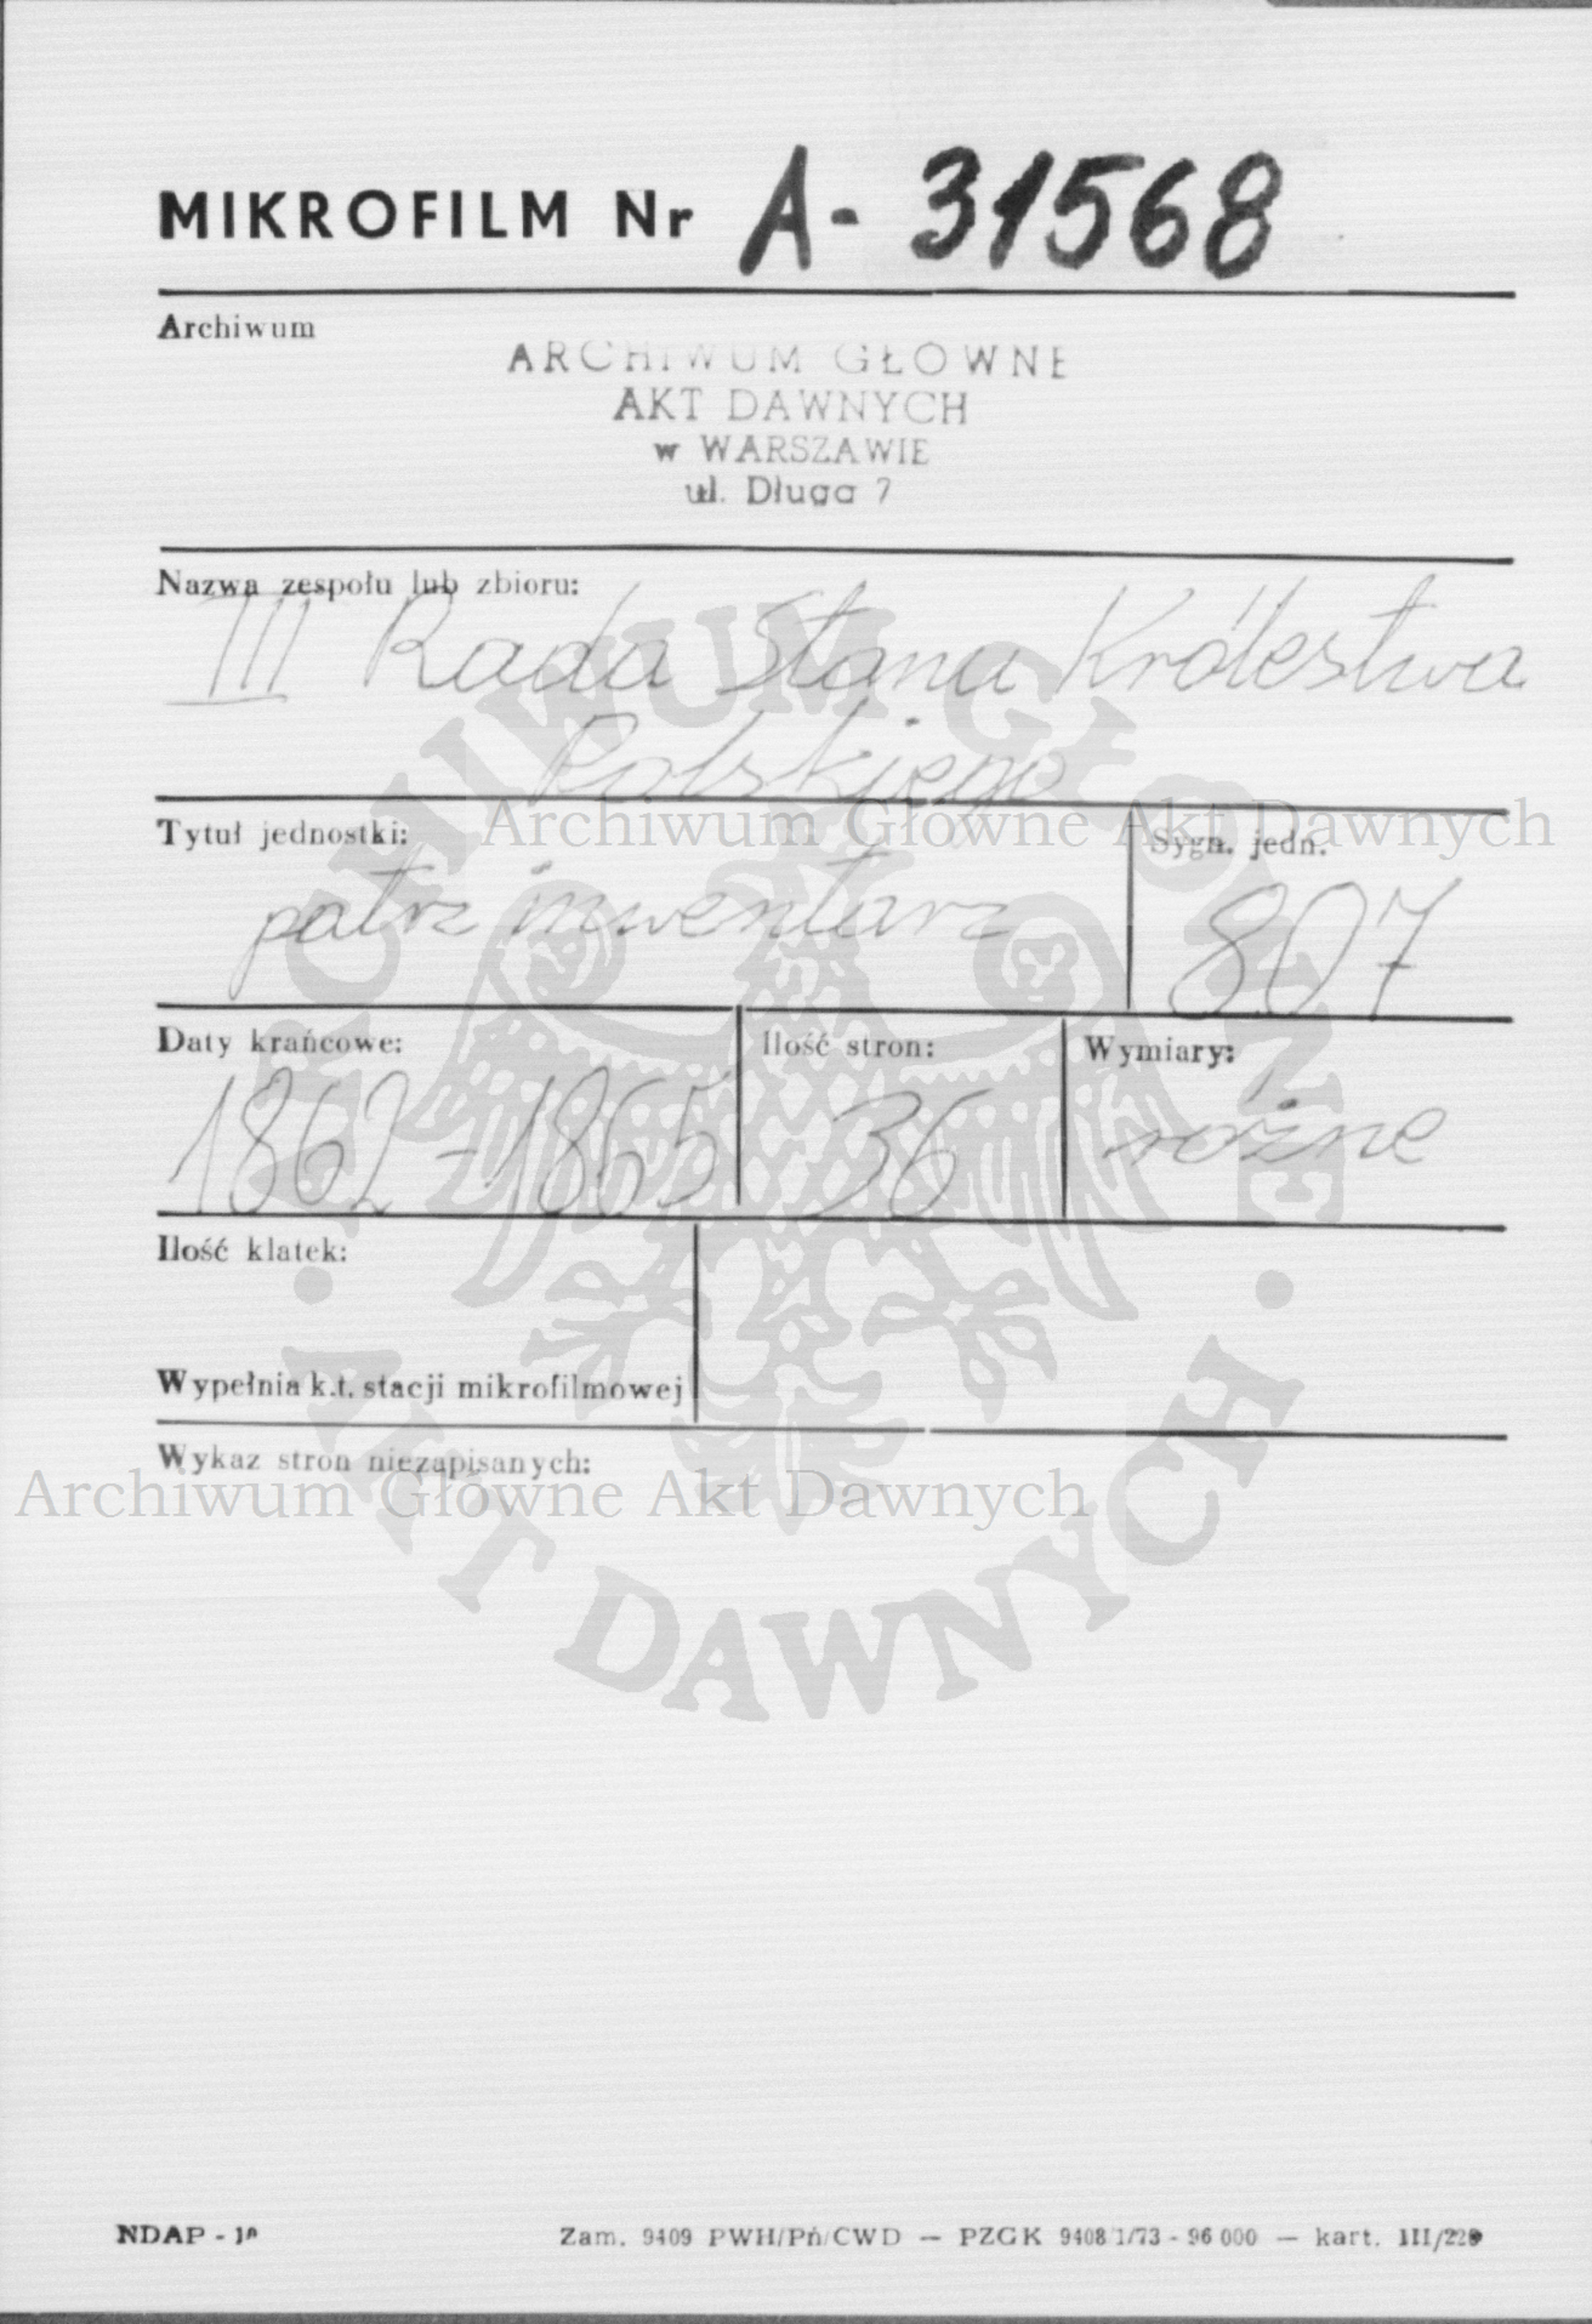 MIKROFILM Nr A-31568
Archiwum
ARCHIWUM GŁOWNE
AKT DAWNYCH
w WARSZAWIE
ul. Długa 7
Nazwa zespołu lub zbioru:
III Rada Stanu Królestwa
Polskiego
Archiwum Główne Akt Dawnych
Tytuł jednostki:
patrz inwentarz
Sygn. jedn.
807
Daty krańcowe:
1862-1865
Ilość stron:
36
Wymiary:
różne
Ilość klatek:
Wypełnia k.t. stacji mikrofilmowej
Wykaz stron niezapisanych:
Archiwum Główne Akt Dawnych
ARCHIWUM GŁÓWNE
· AKT DAWNYCH ·
NDAP -
Zam. 9409 PWH/Pń/CWD — PZGK 9408/1/73 - 96 000 — kart. III/220